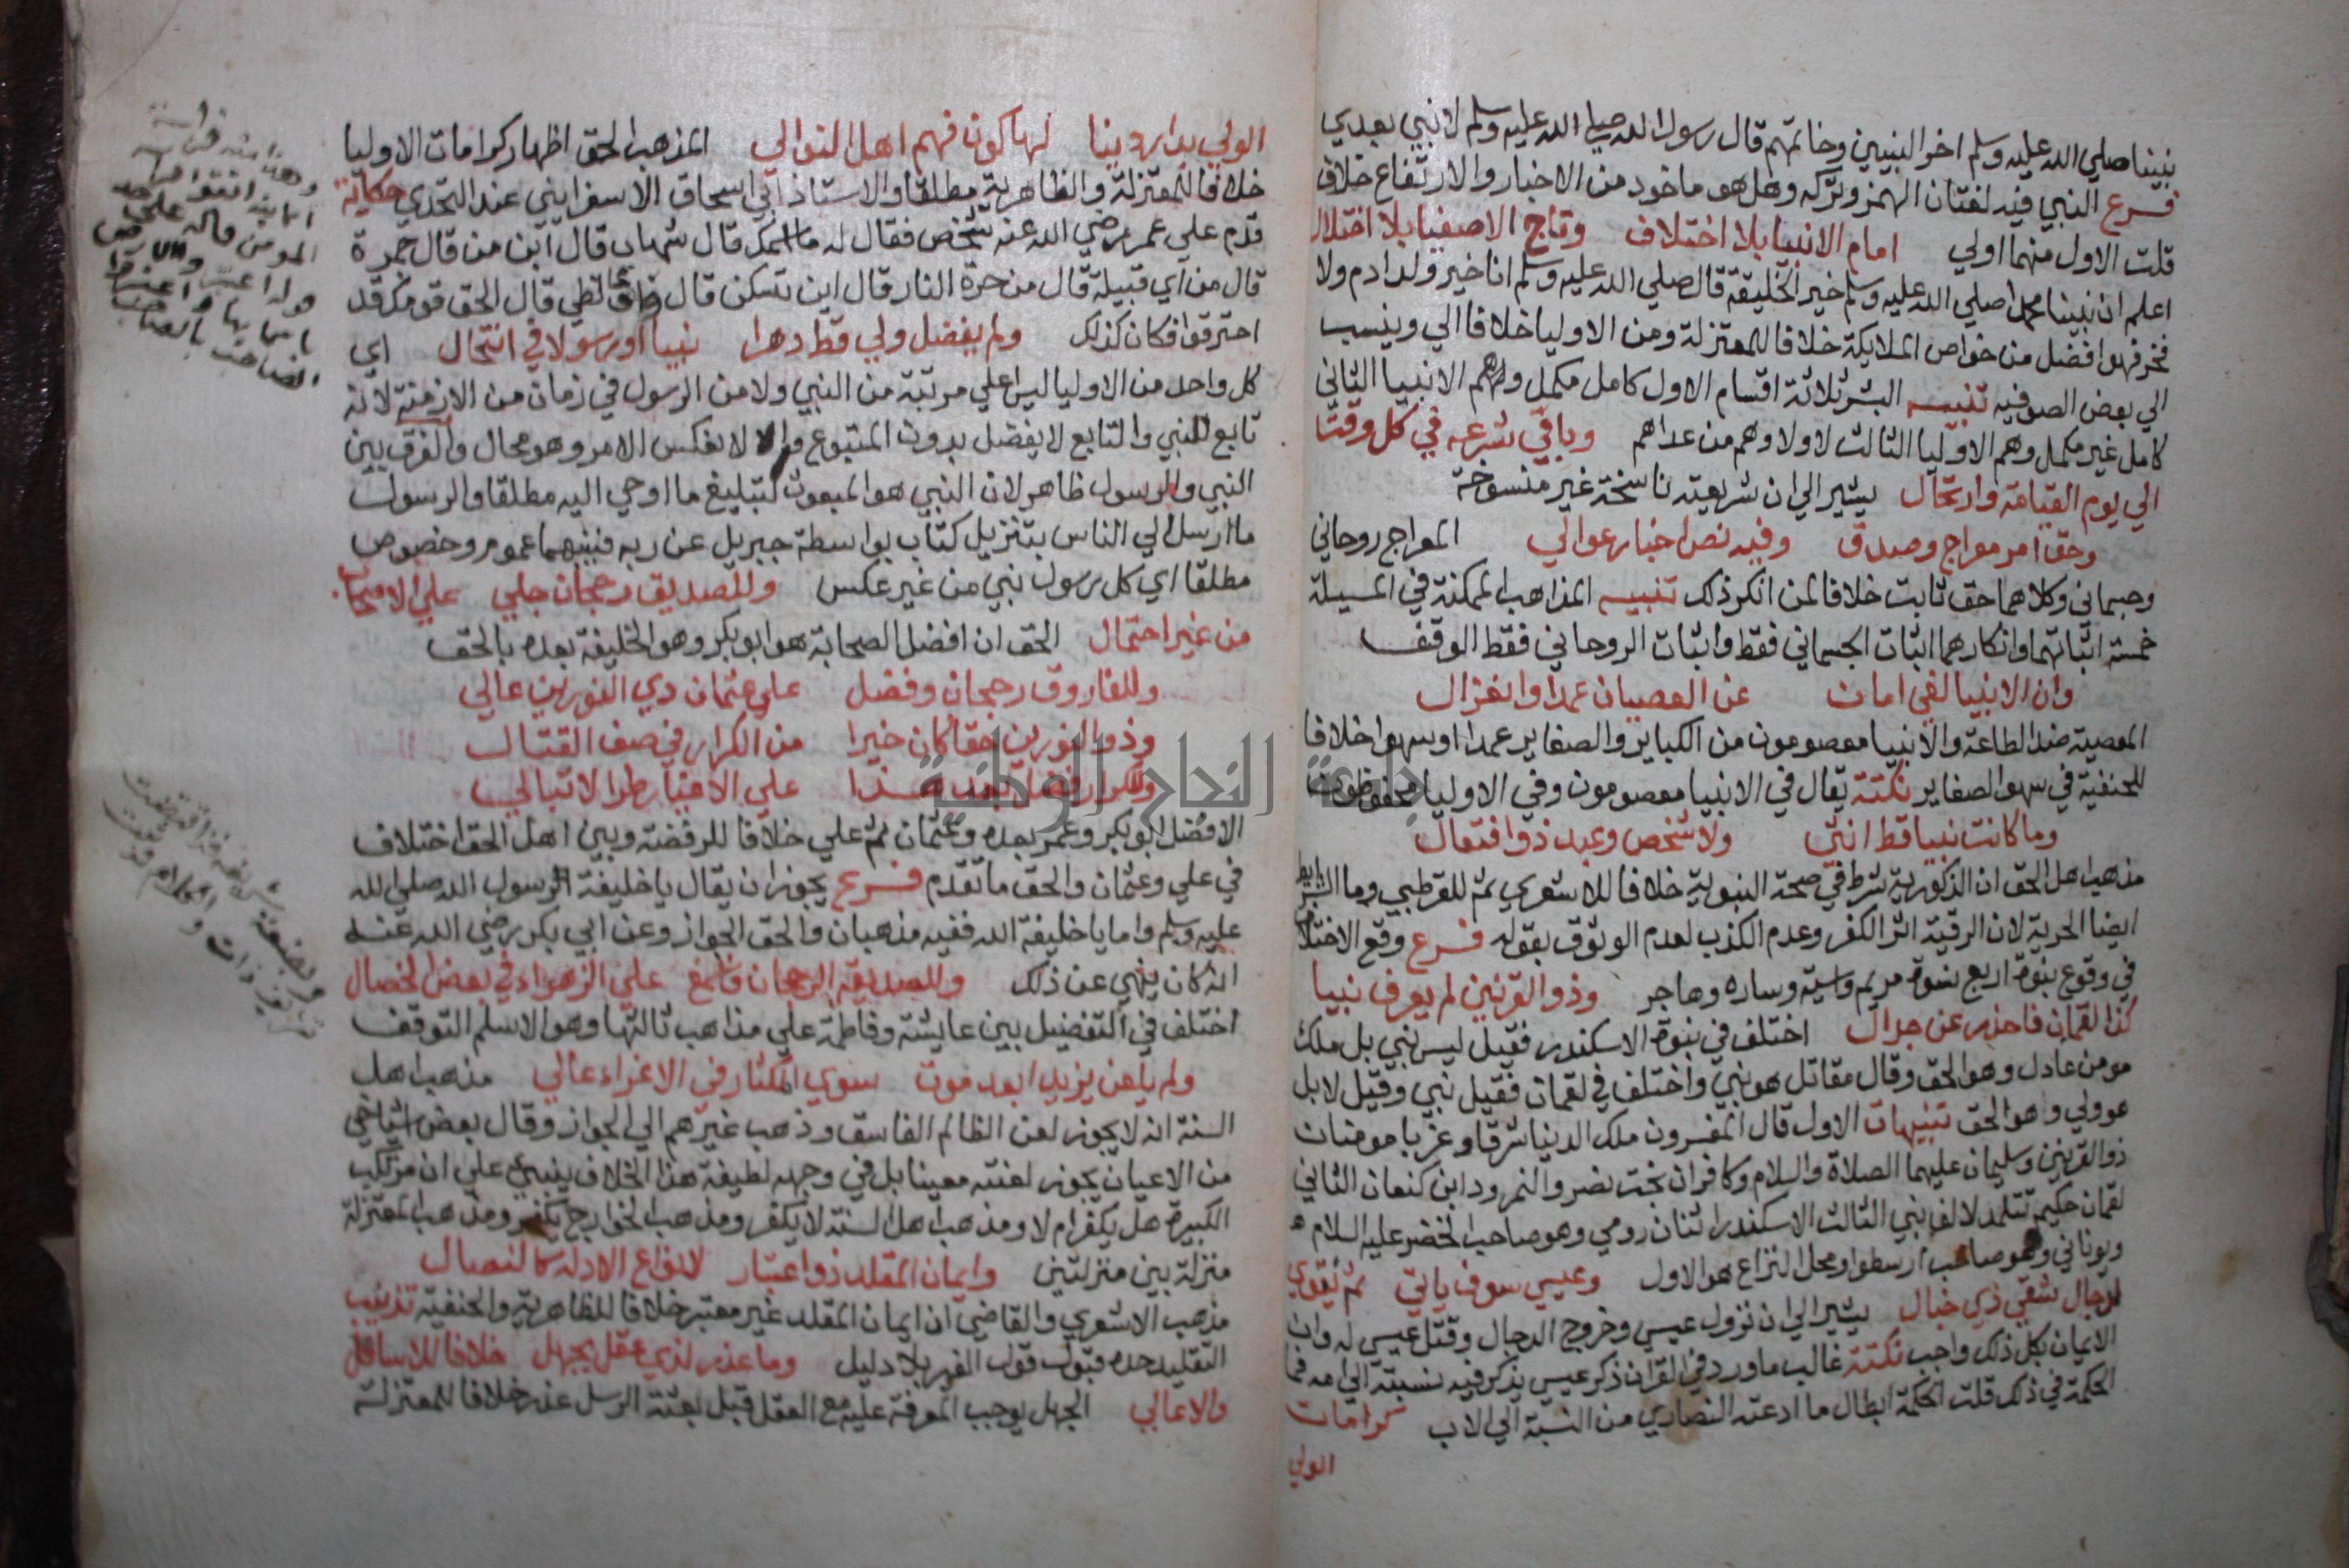 نبينا صلي الله عليه وسلم اخر النبيين وخاتمهم قال رسول الله صلي الله عليه وسلم لا نبي بعدي
فرع النبي فيه لغتان الهمز وتركه وهل هو ماخوذ من الاخبار والارتفاع خلاف
قلت الاول منهما اولي امام الانبيا بلا اختلاف وتاج الاصفيا بلا اختلال
اعلم ان نبينا محمدا صلي الله عليه وسلم خير الخليقة قال صلي الله عليه وسلم انا خير ولد ادم ولا
فخر فهو افضل من خواص الملايكة خلافا للمعتزلة ومن الاوليا خلافا الي وينسب
الي بعض الصوفيه تنبيه البشر ثلاثة اقسام الاول كامل مكمل وهم الانبيا الثاني
كامل غير مكمل وهم الاوليا الثالث لا ولا وهم من عداهم وباقي شرعه في كل وقت
الي يوم القيامة وارتحال يشير الي ان شريعته ناسخة غير منسوخة
وحق امر معراج وصدق وفيه نص اخبار عوالي المعراج روحاني
وجسماني وكلاهما حق ثابت خلافا لمن انكر ذلك تنبيه المذاهب الممكنة في المسيلة
خمسة اثباتهما وانكارهما اثبات الجسماني فقط واثبات الروحاني فقط الوقف
وان الانبيا لفي امان عن العصيان عمدا وانغزال
المعصية ضد الطاعة والانبيا معصومون من الكباير والصغاير عمدا او سهوا خلافا
للحنفية في سهو الصغاير نكتة يقال في الانبيا معصومون وفي الاوليا محفوظون
وما كانت نبيا قط انثي ولا شخص وعبد ذو افتعال
مذهب اهل الحق ان الذكورية شرط في صحة النبوية خلافا للاشعري ثم للقرطبي وما الشرايط
ايضا الحرية لان الرقية اثر الكفر وعدم الكذب لعدم الوثوق بقوله فرع وقع الاختلاف
في وقوع نبوة اربع نسوة مريم واسية وساره وهاجر وذو القرنين لم يعرف نبيا
كذا لقمان فاحذر عن جدال اختلف في نبوة الاسكندر فقيل ليس نبي بل ملك
مومن عادل وهو الحق وقال مقاتل هو نبي واختلف في لقمان فقيل نبي وقيل لا بل
هو ولي وهو الحق تنبيهات الاول قال المفسرون ملك الدنيا شرقا وغربا مومنان
ذو القرنين وسليمان عليهما الصلاة والسلام وكافران بخت نصر والنمرود ابن كنعان الثاني
لقمان حكيم تتلمذ لالف نبي الثالث الاسكندر اثنان رومي وهو صاحب الخضر عليه السلام
ويوناني وهو صاحب ارسطوا ومحل النزاع هو الاول وعيسي سوف ياتي ثم يتوي
لدجال شقي ذي خبال يشير الي ان نزول عيسي وخروج الدجال وقتل عيسي له وان
الايمان بكل ذلك واجب نكتة غالب ما ورد في القران ذكر عيسي يذكر فيه نسبته الي امه فما
الحكمة في ذلك قلت الحكمة ابطال ما ادعته النصاري من النسبة الي الاب كرامات
الولي
الولي بدار دنيا لها كون فهم اهل النوالي المذهب الحق اظهار كرامات الاوليا
خلافا للمعتزلة والظاهرية مطلقا والاستاذ ابي اسحاق الاسفرايني عند التحدي حكاية
قدم علي عمر رضي الله عنه شخص فقال له ما اسمك قال شهاب قال ابن من قال جمرة
قال من اي قبيلة قال من حرة النار قال اين تسكن قال لظي قال الحق قومك قد
احترقوا فكان كذلك ولم يفضل ولي قط دهرا نبيا او رسولا في انتحال اي
كل واحد من الاوليا ليس اعلي مرتبة من النبي ولا من الرسول في زمان من الازمنة لانه
تابع للنبي والتابع لا يفضل بدون المتبوع والا لانعكس الامر وهو محال والفرق بين
النبي والرسول ظاهر لان النبي هو المبعوث لتبليغ ما اوحي اليه مطلقا والرسول
ما ارسل الي الناس بتنزيل كتاب بواسطة جبريل عن ربه فبينهما عموم وخصوص
مطلقا اي كل رسول نبي من غير عكس وللصديق رجحان جلي علي الاصحاب
من غير احتمال الحق ان افضل الصحابة هو ابو بكر وهو الخليفة بعده بالحق
وللفاروق رجحان وفضل علي عثمان ذي النورين عالي
وذو النورين حقا كان خيرا من الكرار في صف القتال
وللكرار فضل بعد هذا علي الاغيار طرا لا تبالي
الافضل ابو بكر وعمر بعده وعثمان ثم علي خلافا للرفضة وبين اهل الحق اختلاف
في علي وعثمان والحق ما تقدم فرع يجوز ان يقال يا خليفة الرسول الله صلي الله
عليه وسلم واما يا خليفة الله ففيه مذهبان والحق الجواز وعن ابي بكر رضي الله عنه
انه كان ينهي عن ذلك وللصديقة الرجحان فاسمع علي الزهراء في بعض الخصال
اختلف في التفضيل بين عايشة وفاطمة علي مذاهب ثالثها وهو الاسلم التوقف
ولم يلعن يزيدا بعد موت سوي المكثار في الاغراء غالي مذهب اهل
السنة انه لا يجوز لعن الظالم الفاسق وذهب غيرهم الي الجواز وقال بعض اشياخي
من الاعيان يجوز لعنته معينا بل في وجهه لطيفة هذا الخلاف ينبني علي ان مرتكب
الكبيرة هل يكفر ام لا ومذهب اهل السنة لا يكفر ومذهب الخوارج يكفر ومذهب المعتزلة
منزلة بين منزلتين وايمان المقلد ذو اعتبار لانواع الادلة كالنصال
مذهب الاشعري والقاضي ان ايمان المقلد غير معتبر خلافا للظاهرية والحنفية تذنيب
التقليد حده قبول قول الغير بلا دليل وما عذر لذي عقل بجهل خلافا للاسافل
والاعالي الجهل يوجب المعرفة عليه مع العقل قبل بعثة الرسل عذر خلافا للمعتزلة
جامعة النجاح الوطنية